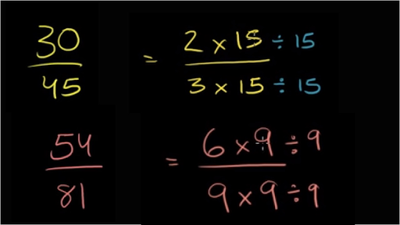 30/45 = 2 × 15 ÷ 15 / 3 × 15 ÷ 15
54/81 = 6 × 9 ÷ 9 / 9 × 9 ÷ 9